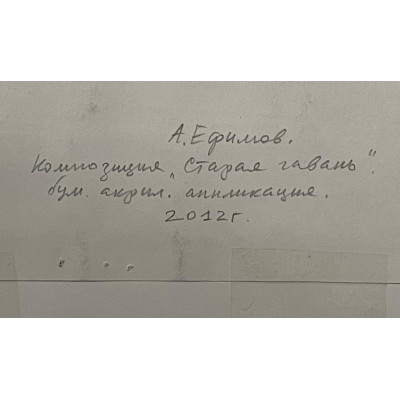 А. Ефимов.
Композиция „Старая гавань".
бум. акрил. аппликация.
2012г.